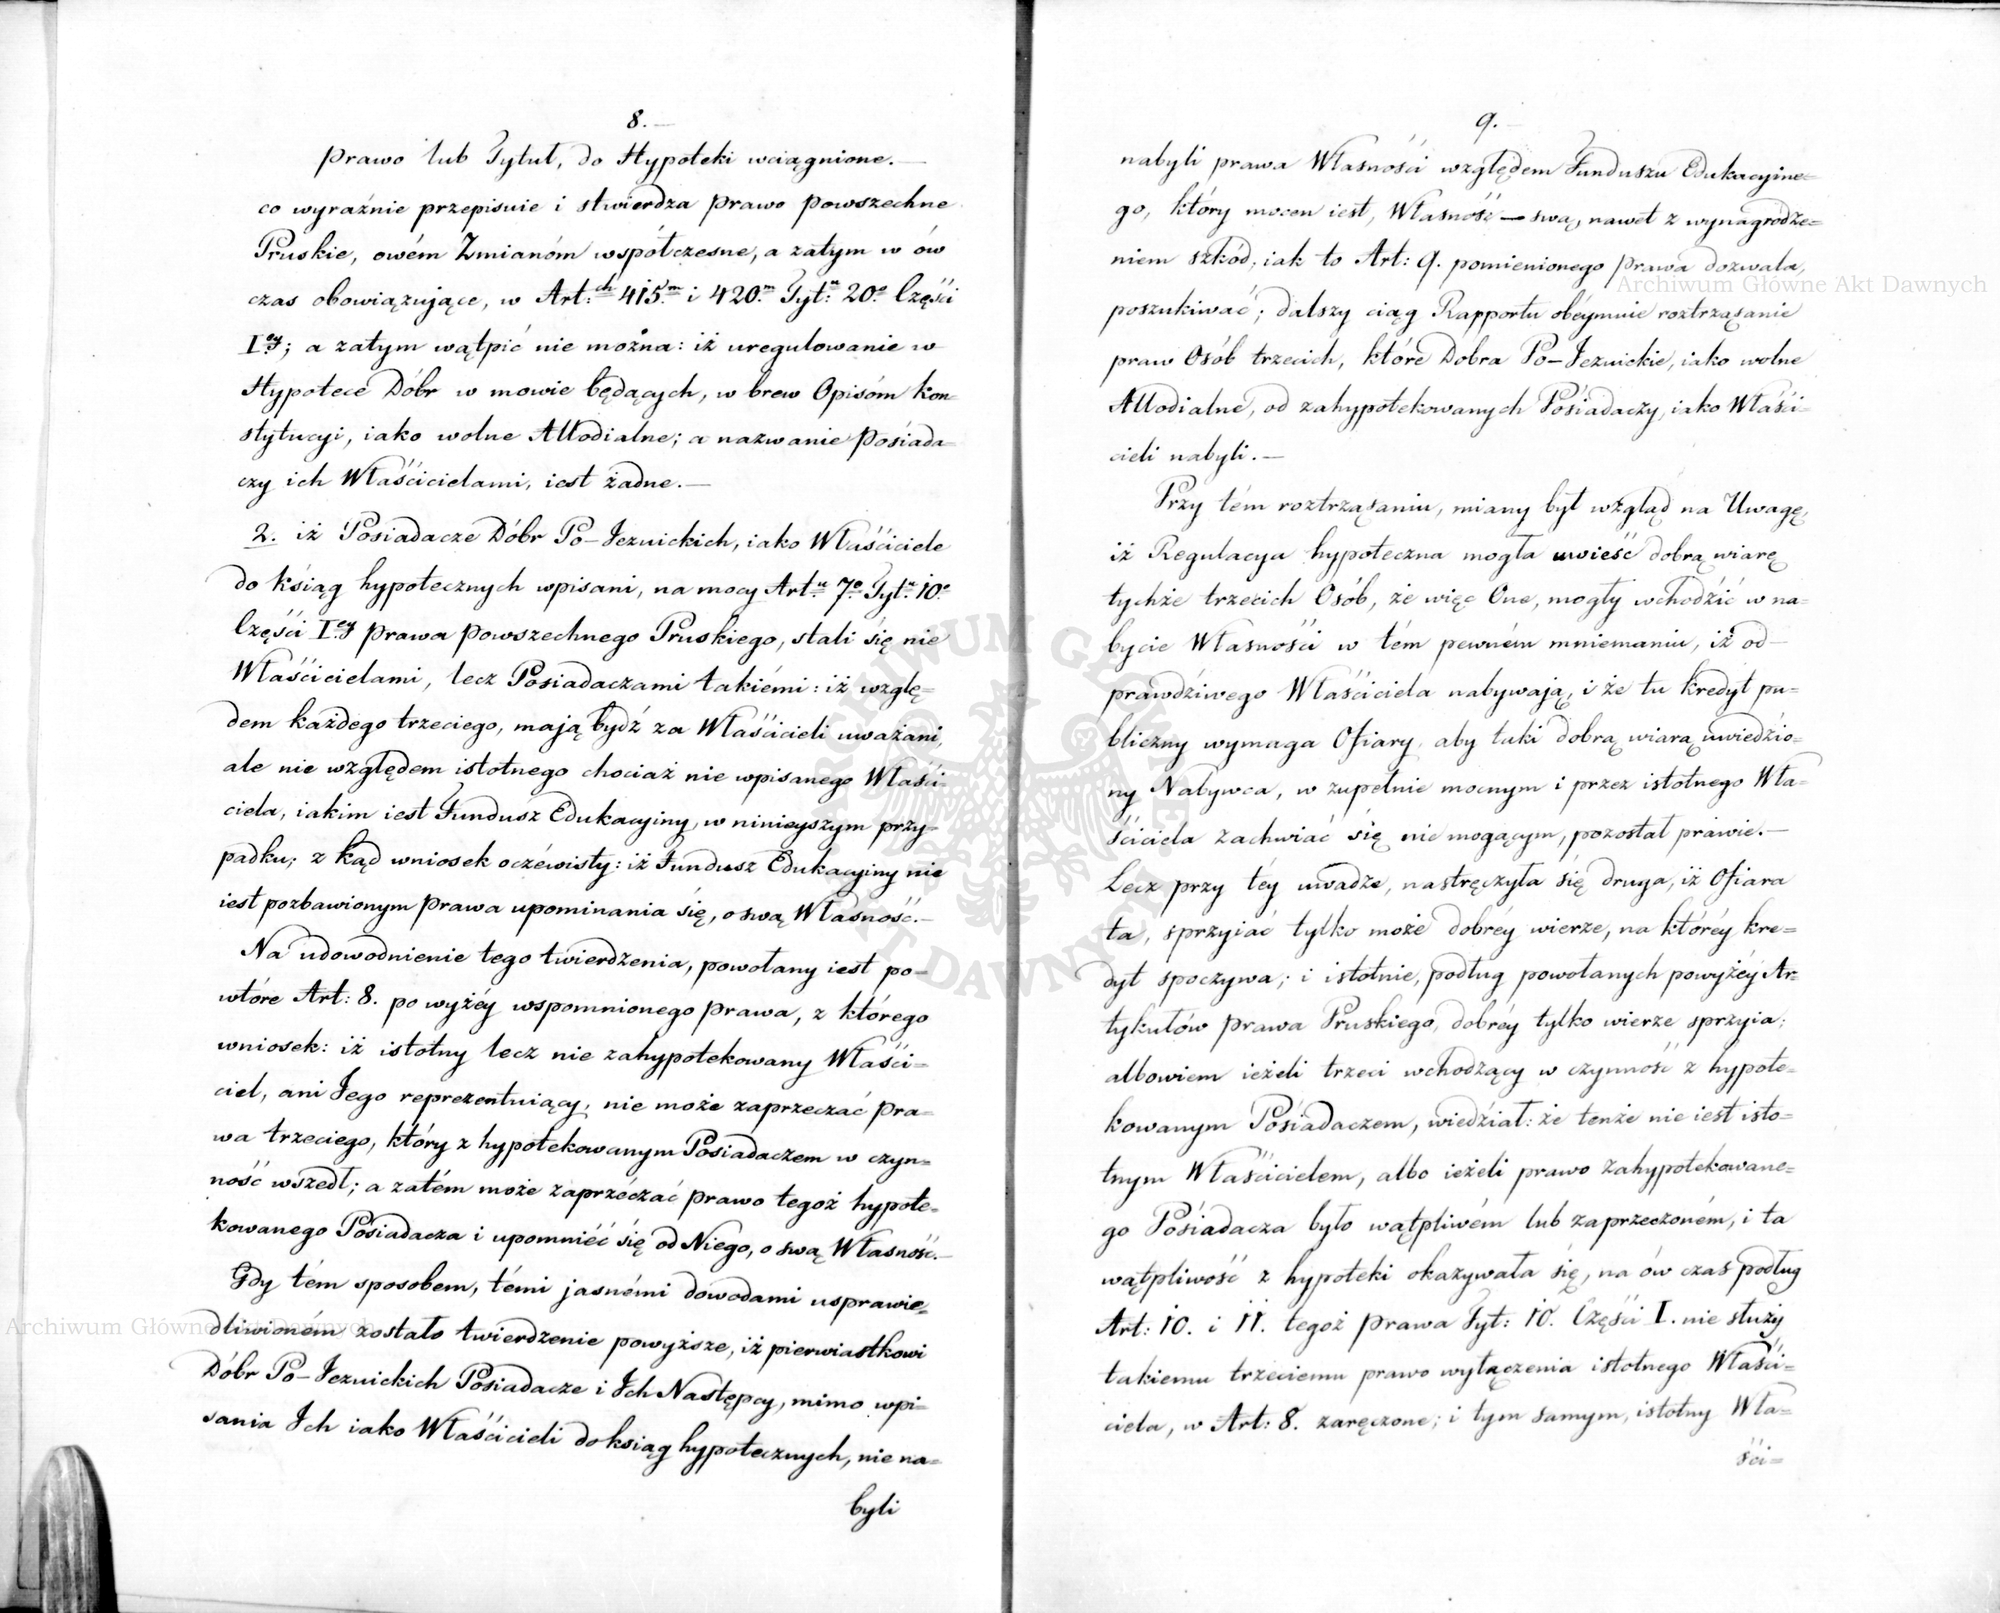 8.—
prawo lub Tytuł, do Hypoteki wciągnione.—
co wyraźnie przepisuie i stwierdza prawo powszechne
Pruskie, owém Zmianóm współczesne, a zatym w ów
czas obowiązujące, w Art:ch 415.m i 420.m Tyt:u 20.o Części
I.ey; a zatym wątpić nie można: iż uregulowanie w
Hypotece Dóbr w mowie będących, w brew Opisóm kon=
stytucyi, iako wolne Allodialne; a nazwanie Posiada=
czy ich Właścicielami, iest żadne.—
2. iż Posiadacze Dóbr Po-Jezuickich, iako Właściciele
do ksiąg hypotecznych wpisani, na mocy Art.u 7.o Tyt.u 10.o
Części I.ey prawa powszechnego Pruskiego, stali się nie
Właścicielami, lecz Posiadaczami takiémi: iż wzglę=
dem każdego trzeciego, mają bydź za Właścicieli uważani,
ale nie względem istotnego chociaż nie wpisanego Właści=
ciela, iakim iest Fundusz Edukacyiny, w ninieyszym przy=
padku; z kąd wniosek oczéwisty: iż Fundusz Edukacyiny nie
iest pozbawionym prawa upominania się, o swą Własność.—
Na udowodnienie tego twierdzenia, powołany iest po=
wtóre Art: 8. po wyżéy wspomnionego prawa, z którego
wniosek: iż istotny lecz nie zahypotekowany Właści=
ciel, ani Jego reprezentuiący, nie może zaprzeczać pra=
wa trzeciego, który z hypotekowanym Posiadaczem w czyn=
ność wszedł; a zatém może zaprzéczać prawo tegoż hypote=
kowanego Posiadacza i upomniéć się od Niego, o swą Własność.—
Gdy tém sposobem, témi jasnémi dowodami usprawie=
dliwioném zostało twierdzenie powyższe, iż pierwiastkowi
Dóbr Po-Jezuickich Posiadacze i Ich Następcy, mimo wpi=
sania Ich iako Właścicieli do ksiąg hypotecznych, nie na=
byli
9.—
nabyli prawa Własności względem Funduszu Edukacyine=
go, który mocen iest, Własność — swą, nawet z wynagrodze=
niem szkód, iak to Art: 9. pomienionego prawa dozwala,
poszukiwać; dalszy ciąg Rapportu obéymuie roztrząsanie
praw Osób trzecich, które Dobra Po-Jezuickie, iako wolne
Allodialne, od zahypotekowanych Posiadaczy, iako Właści=
cieli nabyli.—
Przy tém roztrząsaniu, miany był wzgląd na Uwagę,
iż Regulacya hypoteczna mogła uwieść dobrą wiarę
tychże trzecich Osób, że więc One, mogły wchodzić w na=
bycie Własności w tém pewném mniemaniu, iż od=
prawdziwego Właściciela nabywają, i że tu kredyt pu=
bliczny wymaga Ofiary, aby taki dobrą wiarą uwiedzio=
ny Nabywca, w zupełnie mocnym i przez istotnego Wła=
ściciela zachwiać się nie mogącym, pozostał prawie.—
Lecz przy téy uwadze, nastręczyła się druga, iż Ofiara
ta, sprzyiać tylko może dobréy wierze, na któréy kre=
dyt spoczywa; i istotnie, podług powołanych powyżéy Ar=
tykułów prawa Pruskiego, dobréy tylko wierze sprzyia;
albowiem ieżeli trzeci wchodzący w czynność z hypote=
kowanym Posiadaczem, wiedział: że tenże nie iest isto=
tnym Właścicielem, albo ieżeli prawo zahypotekowane=
go Posiadacza było wątpliwém lub zaprzeczoném, i ta
wątpliwość z hypoteki okazywała się, na ów czas podług
Art: 10. i 11. tegoż prawa Tyt: 10. Części I. nie służy
takiemu trzeciemu prawo wyłączenia istotnego Właści=
ciela, w Art: 8. zaręczone; i tym samym, istotny Wła=
ści=
Archiwum Główne Akt Dawnych
Archiwum Główne Akt Dawnych
ARCHIWUM GŁÓWNE AKT DAWNYCH